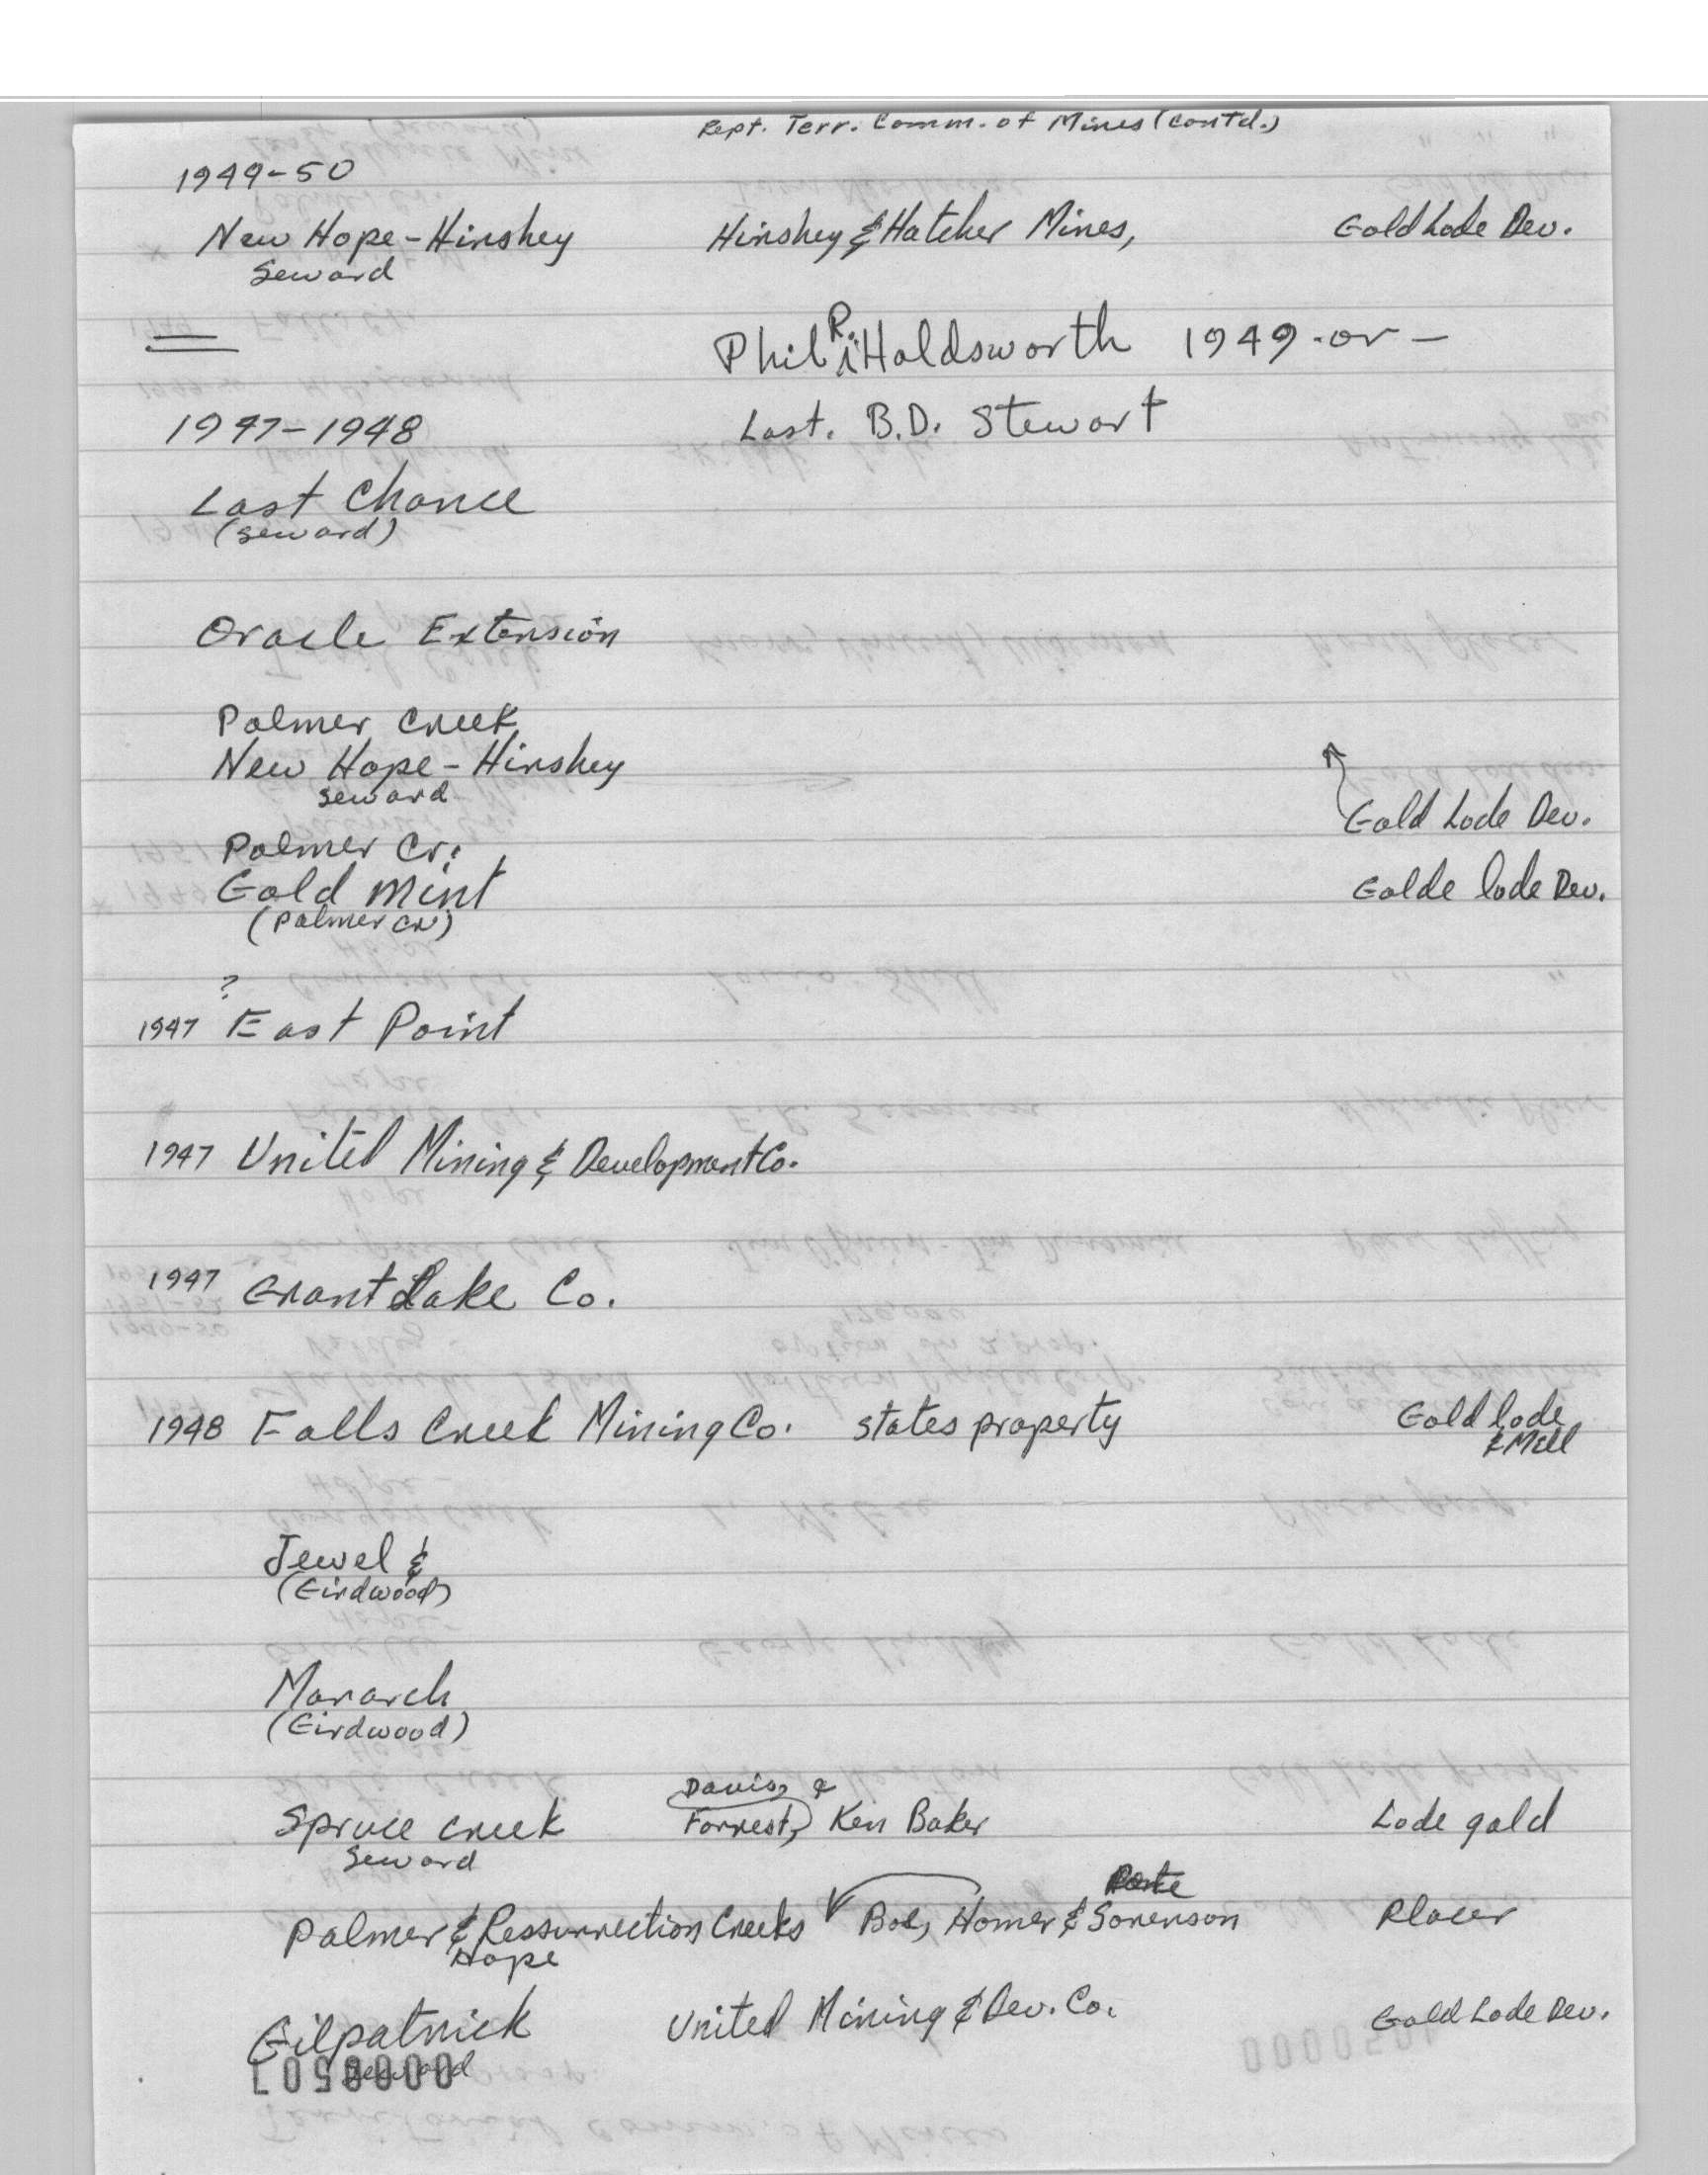 Rept. Terr. Comm. of Mines (contd.)
1949-50
New Hope-Hirshey Hirshey & Hatcher Mines, Gold Lode Dev.
Seward
Phil R. Holdsworth 1949 -or -
1947-1948 Last. B.D. Stewart
Last Chance
(Seward)
Oracle Extension
Palmer Creek
New Hope-Hirshey
Seward Gold Lode Dev.
Palmer Cr.
Gold Mint Golde lode Dev.
(Palmer Cr)
?
1947 East Point
1947 United Mining & Development Co.
1947 Grant Lake Co.
1948 Falls Creek Mining Co. states property Gold lode
& Mill
Jewel &
(Girdwood)
Monarch
(Girdwood)
Davis, &
Spruce Creek Forrest, Ken Baker Lode gold
Seward
Palmer & Ressurrection Creeks Bob, Homer & Sorenson Placer
Hope
Gilpatrick United Mining & Dev. Co. Gold Lode Dev.
Seward